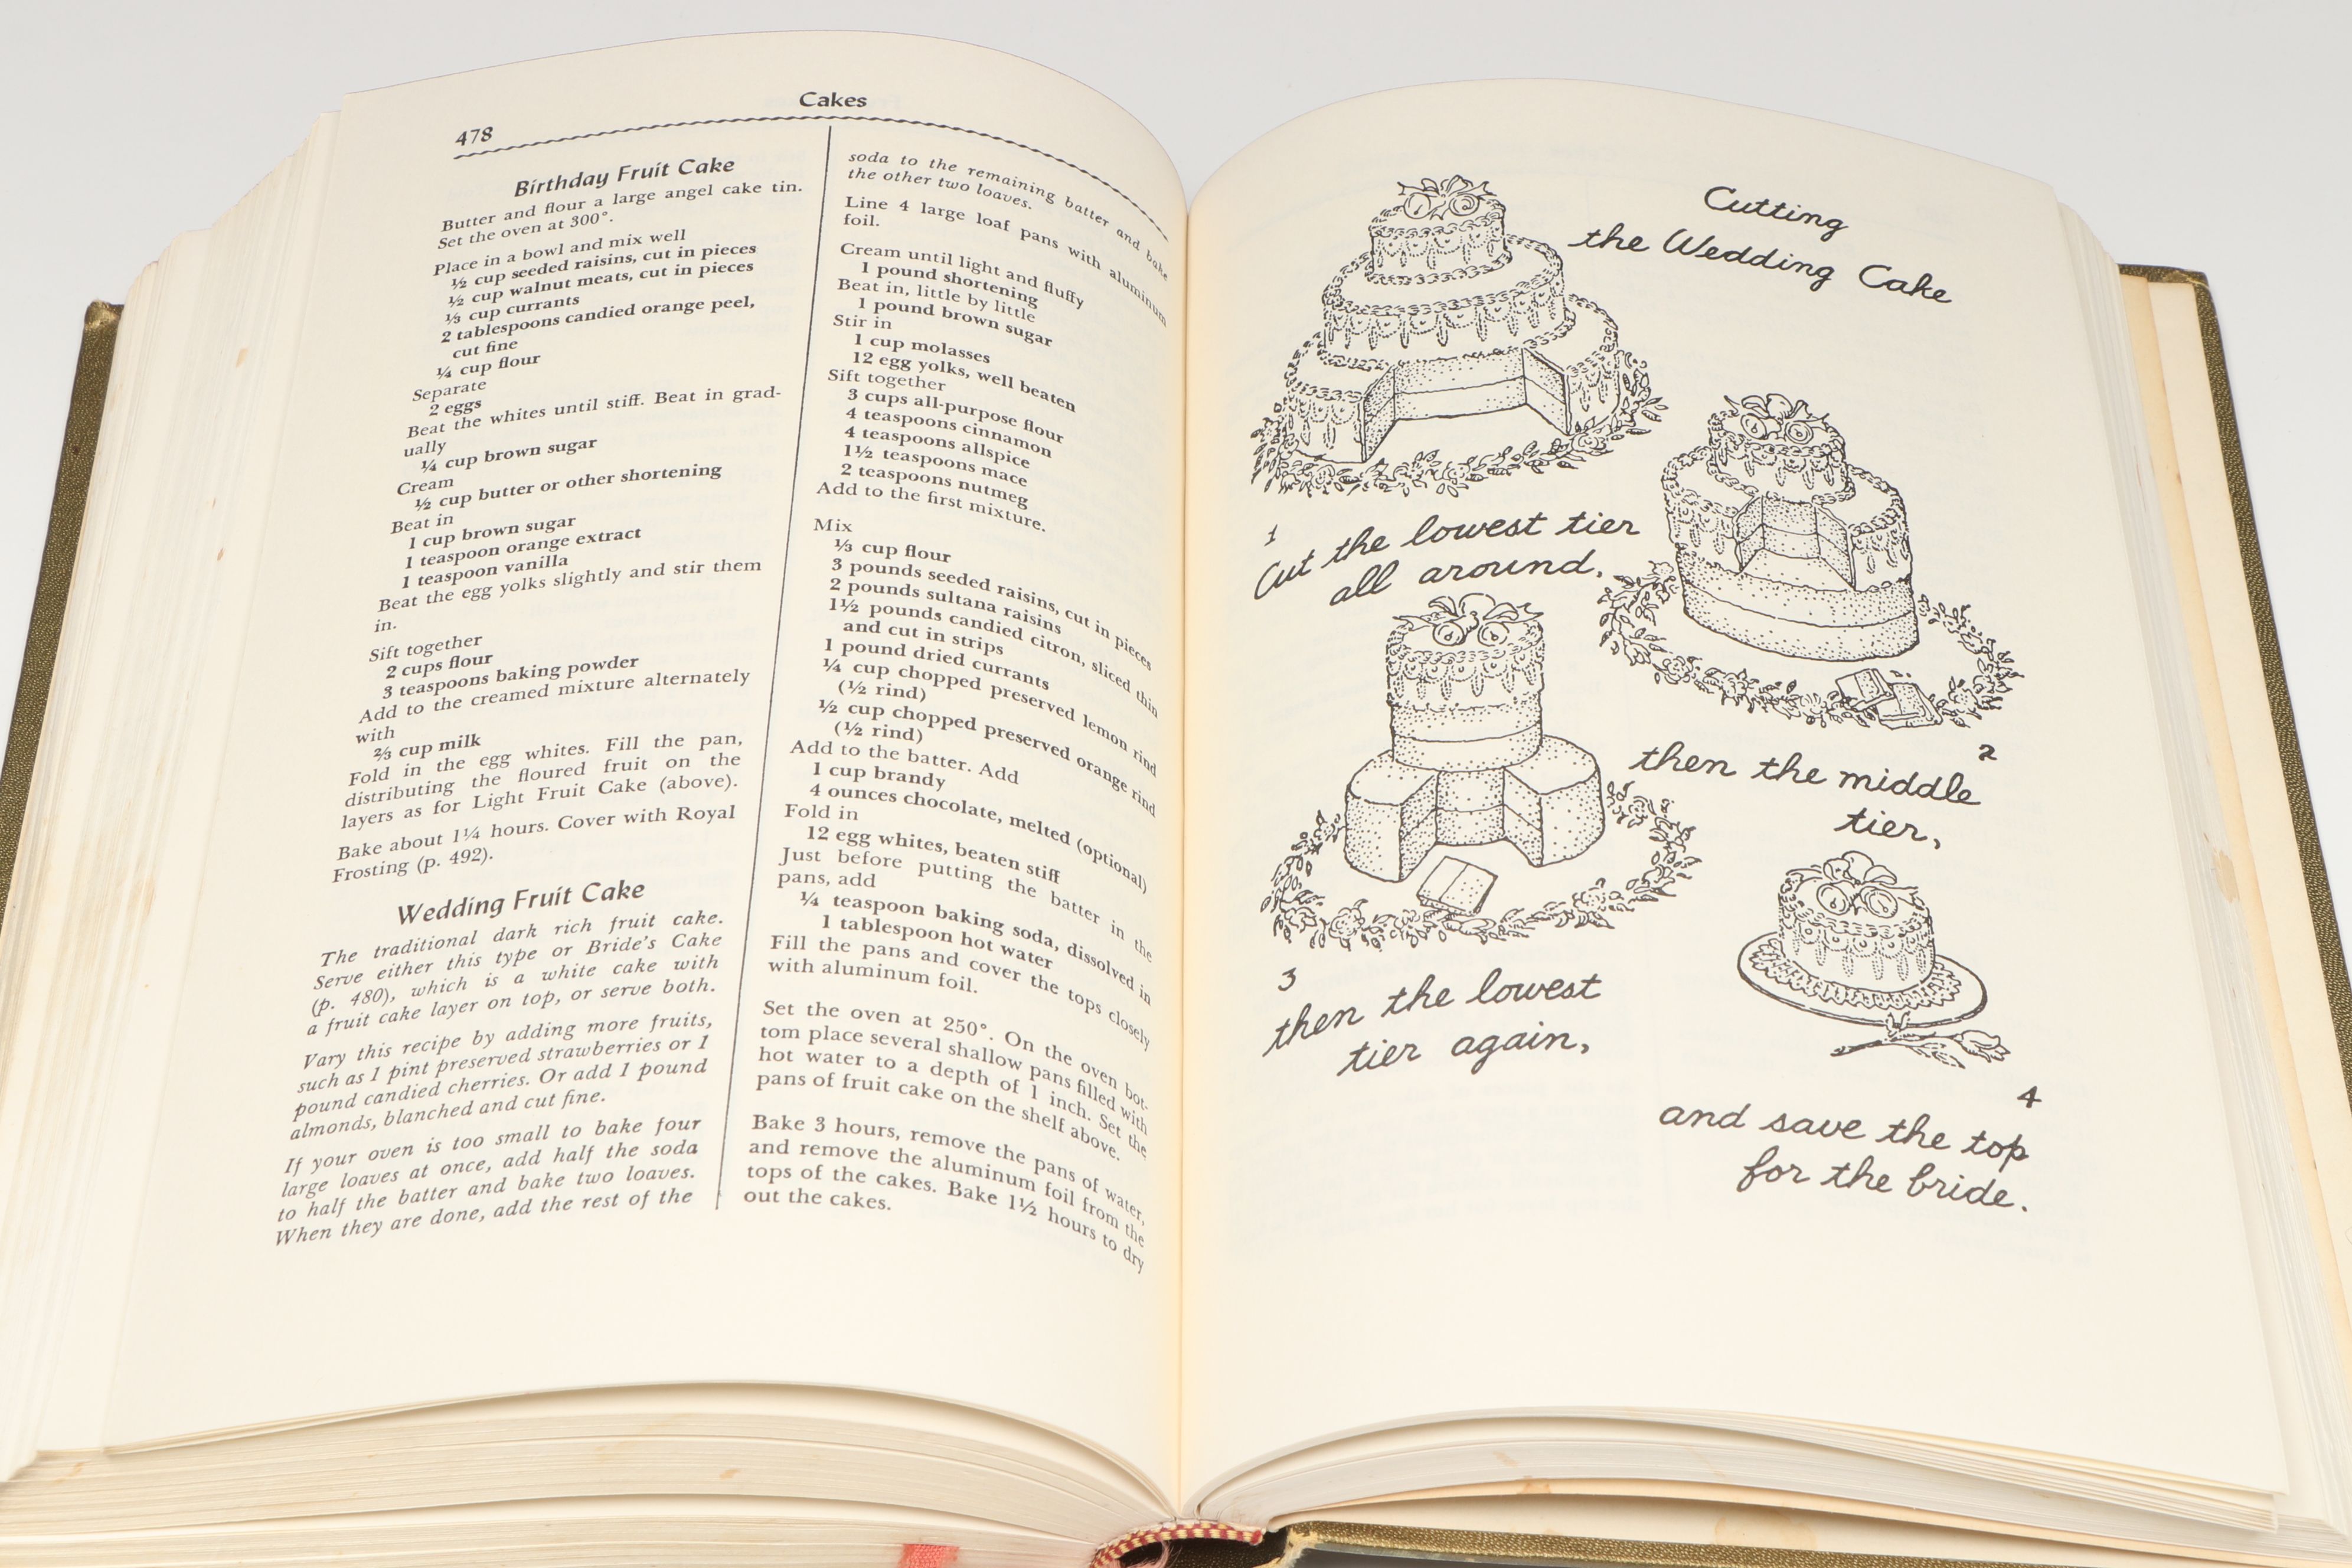 478
Cakes
Birthday Fruit Cake
Butter and flour a large angel cake tin.
Set the oven at 300°.
Place in a bowl and mix well
½ cup seeded raisins, cut in pieces
½ cup walnut meats, cut in pieces
⅓ cup currants
2 tablespoons candied orange peel,
cut fine
¼ cup flour
Separate
2 eggs
Beat the whites until stiff. Beat in grad-
ually
¼ cup brown sugar
Cream
½ cup butter or other shortening
Beat in
1 cup brown sugar
1 teaspoon orange extract
1 teaspoon vanilla
Beat the egg yolks slightly and stir them
in.
Sift together
2 cups flour
3 teaspoons baking powder
Add to the creamed mixture alternately
with
⅔ cup milk
Fold in the egg whites. Fill the pan,
distributing the floured fruit on the
layers as for Light Fruit Cake (above).
Bake about 1¼ hours. Cover with Royal
Frosting (p. 492).
Wedding Fruit Cake
The traditional dark rich fruit cake.
Serve either this type or Bride's Cake
(p. 480), which is a white cake with
a fruit cake layer on top, or serve both.
Vary this recipe by adding more fruits,
such as 1 pint preserved strawberries or 1
pound candied cherries. Or add 1 pound
almonds, blanched and cut fine.
If your oven is too small to bake four
large loaves at once, add half the soda
to half the batter and bake two loaves.
When they are done, add the rest of the
soda to the remaining batter and bake
the other two loaves.
Line 4 large loaf pans with aluminum
foil.
Cream until light and fluffy
1 pound shortening
Beat in, little by little
1 pound brown sugar
Stir in
1 cup molasses
12 egg yolks, well beaten
Sift together
3 cups all-purpose flour
4 teaspoons cinnamon
4 teaspoons allspice
1½ teaspoons mace
2 teaspoons nutmeg
Add to the first mixture.
Mix
⅓ cup flour
3 pounds seeded raisins, cut in pieces
2 pounds sultana raisins
1½ pounds candied citron, sliced thin
and cut in strips
1 pound dried currants
¼ cup chopped preserved lemon rind
(½ rind)
½ cup chopped preserved orange rind
(½ rind)
Add to the batter. Add
1 cup brandy
4 ounces chocolate, melted (optional)
Fold in
12 egg whites, beaten stiff
Just before putting the batter in the
pans, add
¼ teaspoon baking soda, dissolved in
1 tablespoon hot water
Fill the pans and cover the tops closely
with aluminum foil.
Set the oven at 250°. On the oven bot-
tom place several shallow pans filled with
hot water to a depth of 1 inch. Set the
pans of fruit cake on the shelf above.
Bake 3 hours, remove the pans of water,
and remove the aluminum foil from the
tops of the cakes. Bake 1½ hours to dry
out the cakes.
Cutting
the Wedding Cake
1
Cut the lowest tier
all around,
2
then the middle
tier,
3
then the lowest
tier again,
4
and save the top
for the bride.